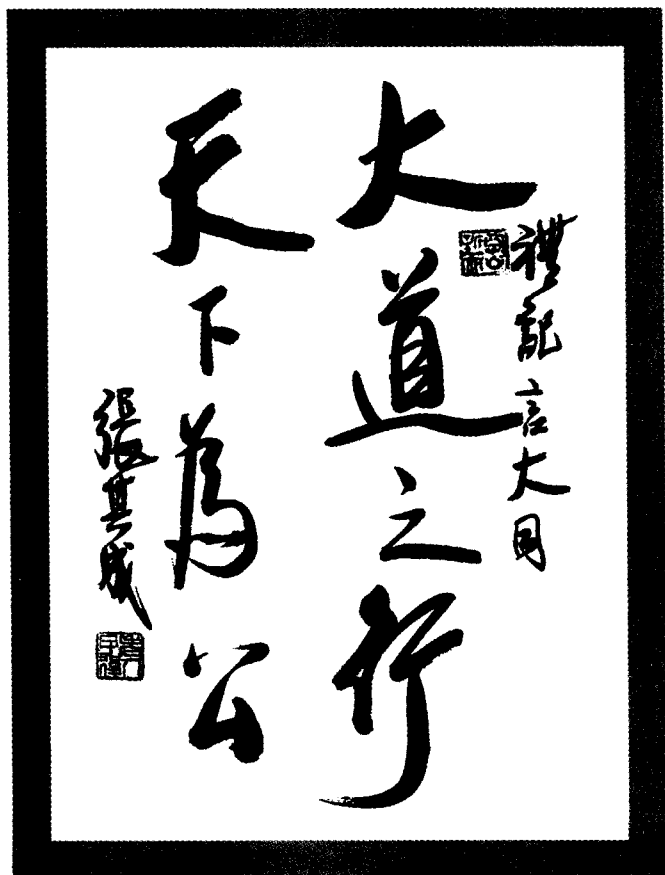 禮記言大同
大道之行
天下為公
張其成